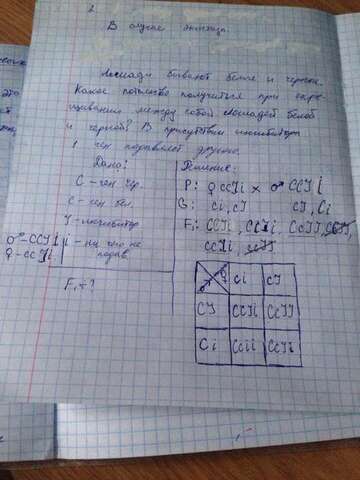 2
В случае эпистаза
Лошади бывают белые и черные.
Какое потомство получиться при скре-
щивании между собой лошадей белой
и черной? В присутствии ингибитора
1 ген подавляет другие.
Дано:
C - ген чер.
c - ген бел.
I - ингибитор
i - ни чего не
подав.
♂ - CCIi
♀ - ccIi
F₁ - ?
Решение:
P: ♀ ccIi × ♂ CCIi
G: ci, cI CI, Ci
F₁: CCIi, Ccii, CcII, CCII,
ccIi, ccII
♂ ♀ ci cI
CI CcIi CcII
Ci Ccii CcIi